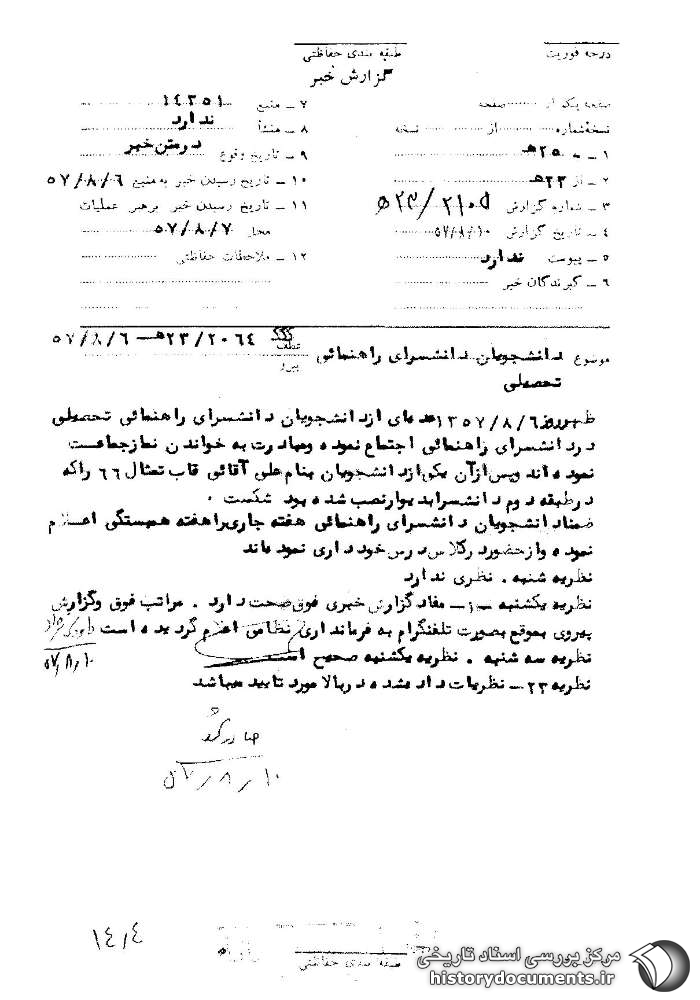 درجه فوریت
طبقه بندی حفاظتی
گزارش خبر
صفحه یک از صفحه
نسخه شماره از نسخه
۱ ـ به ۲۵۰ هـ
۲ ـ از ۲۳ هـ
۳ ـ شماره گزارش ۲۳/۲۱۰۵ هـ
۴ ـ تاریخ گزارش ۵۷/۸/۱۰
۵ ـ پیوست ندارد
۶ ـ گیرندگان خبر
۷ ـ منبع ۱۴۳۵۱
۸ ـ منشأ ندارد
۹ ـ تاریخ وقوع درمتن خبر
۱۰ ـ تاریخ رسیدن خبر به منبع ۵۷/۸/۶
۱۱ ـ تاریخ رسیدن خبر برهبر عملیات
محل ۵۷/۸/۷
۱۲ ـ ملاحظات حفاظتی
عطف ۲۳/۲۰۶۴ هـ ـ ۵۷/۸/۶
پیرو
موضوع دانشجویان دانشسرای راهنمائی
تحصیلی
ظهرروز ۱۳۵۷/۸/۶ عده ای ازدانشجویان دانشسرای راهنمائی تحصیلی
دردانشسرای راهنمائی اجتماع نموده ومبادرت به خواندن نمازجماعت
نموده اند وپس ازآن یکی ازدانشجویان بنام علی آقائی قاب تمثال ۶۶ راکه
درطبقه دوم دانشسرابدیوارنصب شده بود شکست ۰
ضمنادانشجویان دانشسرای راهنمائی هفته جاری راهفته همبستگی اعلام
نموده وازحضوردرکلاس درس خودداری نموده اند
نظریه شنبه ۰ نظری ندارد
نظریه یکشنبه ـ مفاد گزارش خبری فوق صحت دارد ۰ مراتب فوق وگزارش
پیروی بموقع بصورت تلفنگرام به فرمانداری نظامی اعلام گردیده است
نظریه سه شنبه ۰ نظریه یکشنبه صحیح است
۵۷/۸/۱۰
نظریه ۲۳ ـ نظریات داده شده دربالا مورد تایید میباشد
۵۷/۸/۱۰
۱۴/۴
طبقه بندی حفاظتی
مرکز بررسی اسناد تاریخی
historydocuments.ir